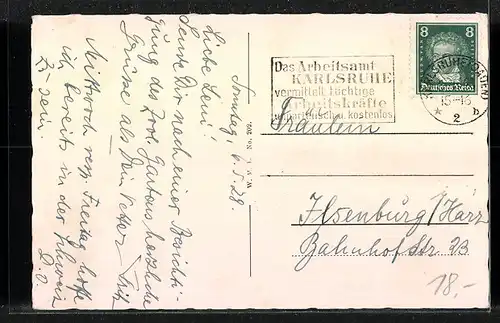 Sonntag, 6.5.28.
Liebe Leni!
Sende Dir nach einer Besichti-
gung des Zool. Gartens herzliche
Grüsse als Dein Vetter Fritz
Mittwoch resp. Freitag hoffe
ich bereits in der Schweiz
zu sein. D.O.
W. W. K. No. 202.
Das Arbeitsamt
KARLSRUHE
vermittelt tüchtige
Arbeitskräfte
unparteiisch u. kostenlos
8 8
Deutsches Reich
KARLSRUHE (BADEN)
15-16
* 2 b
Fräulein
Ilsenburg/Harz
Bahnhofstr. 23
18.-